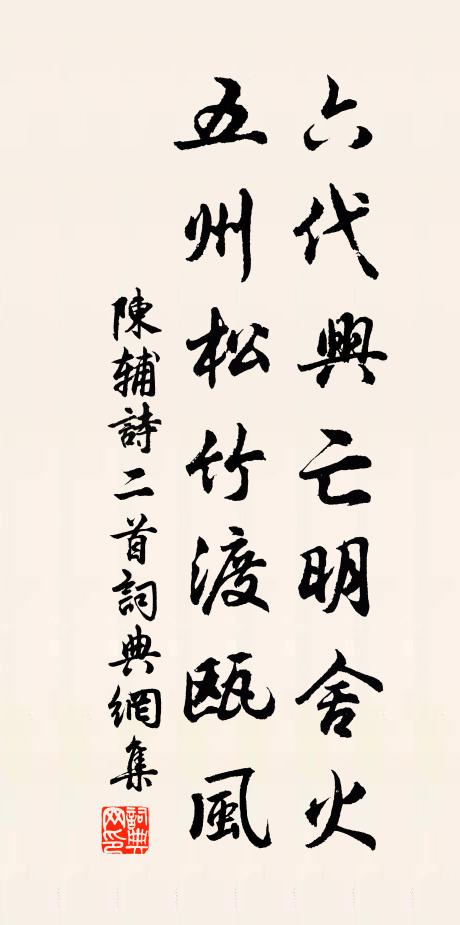 六代興亡明舍火
五州松竹渡瓯風
陳辅詩二首詞典網集
詞典網印